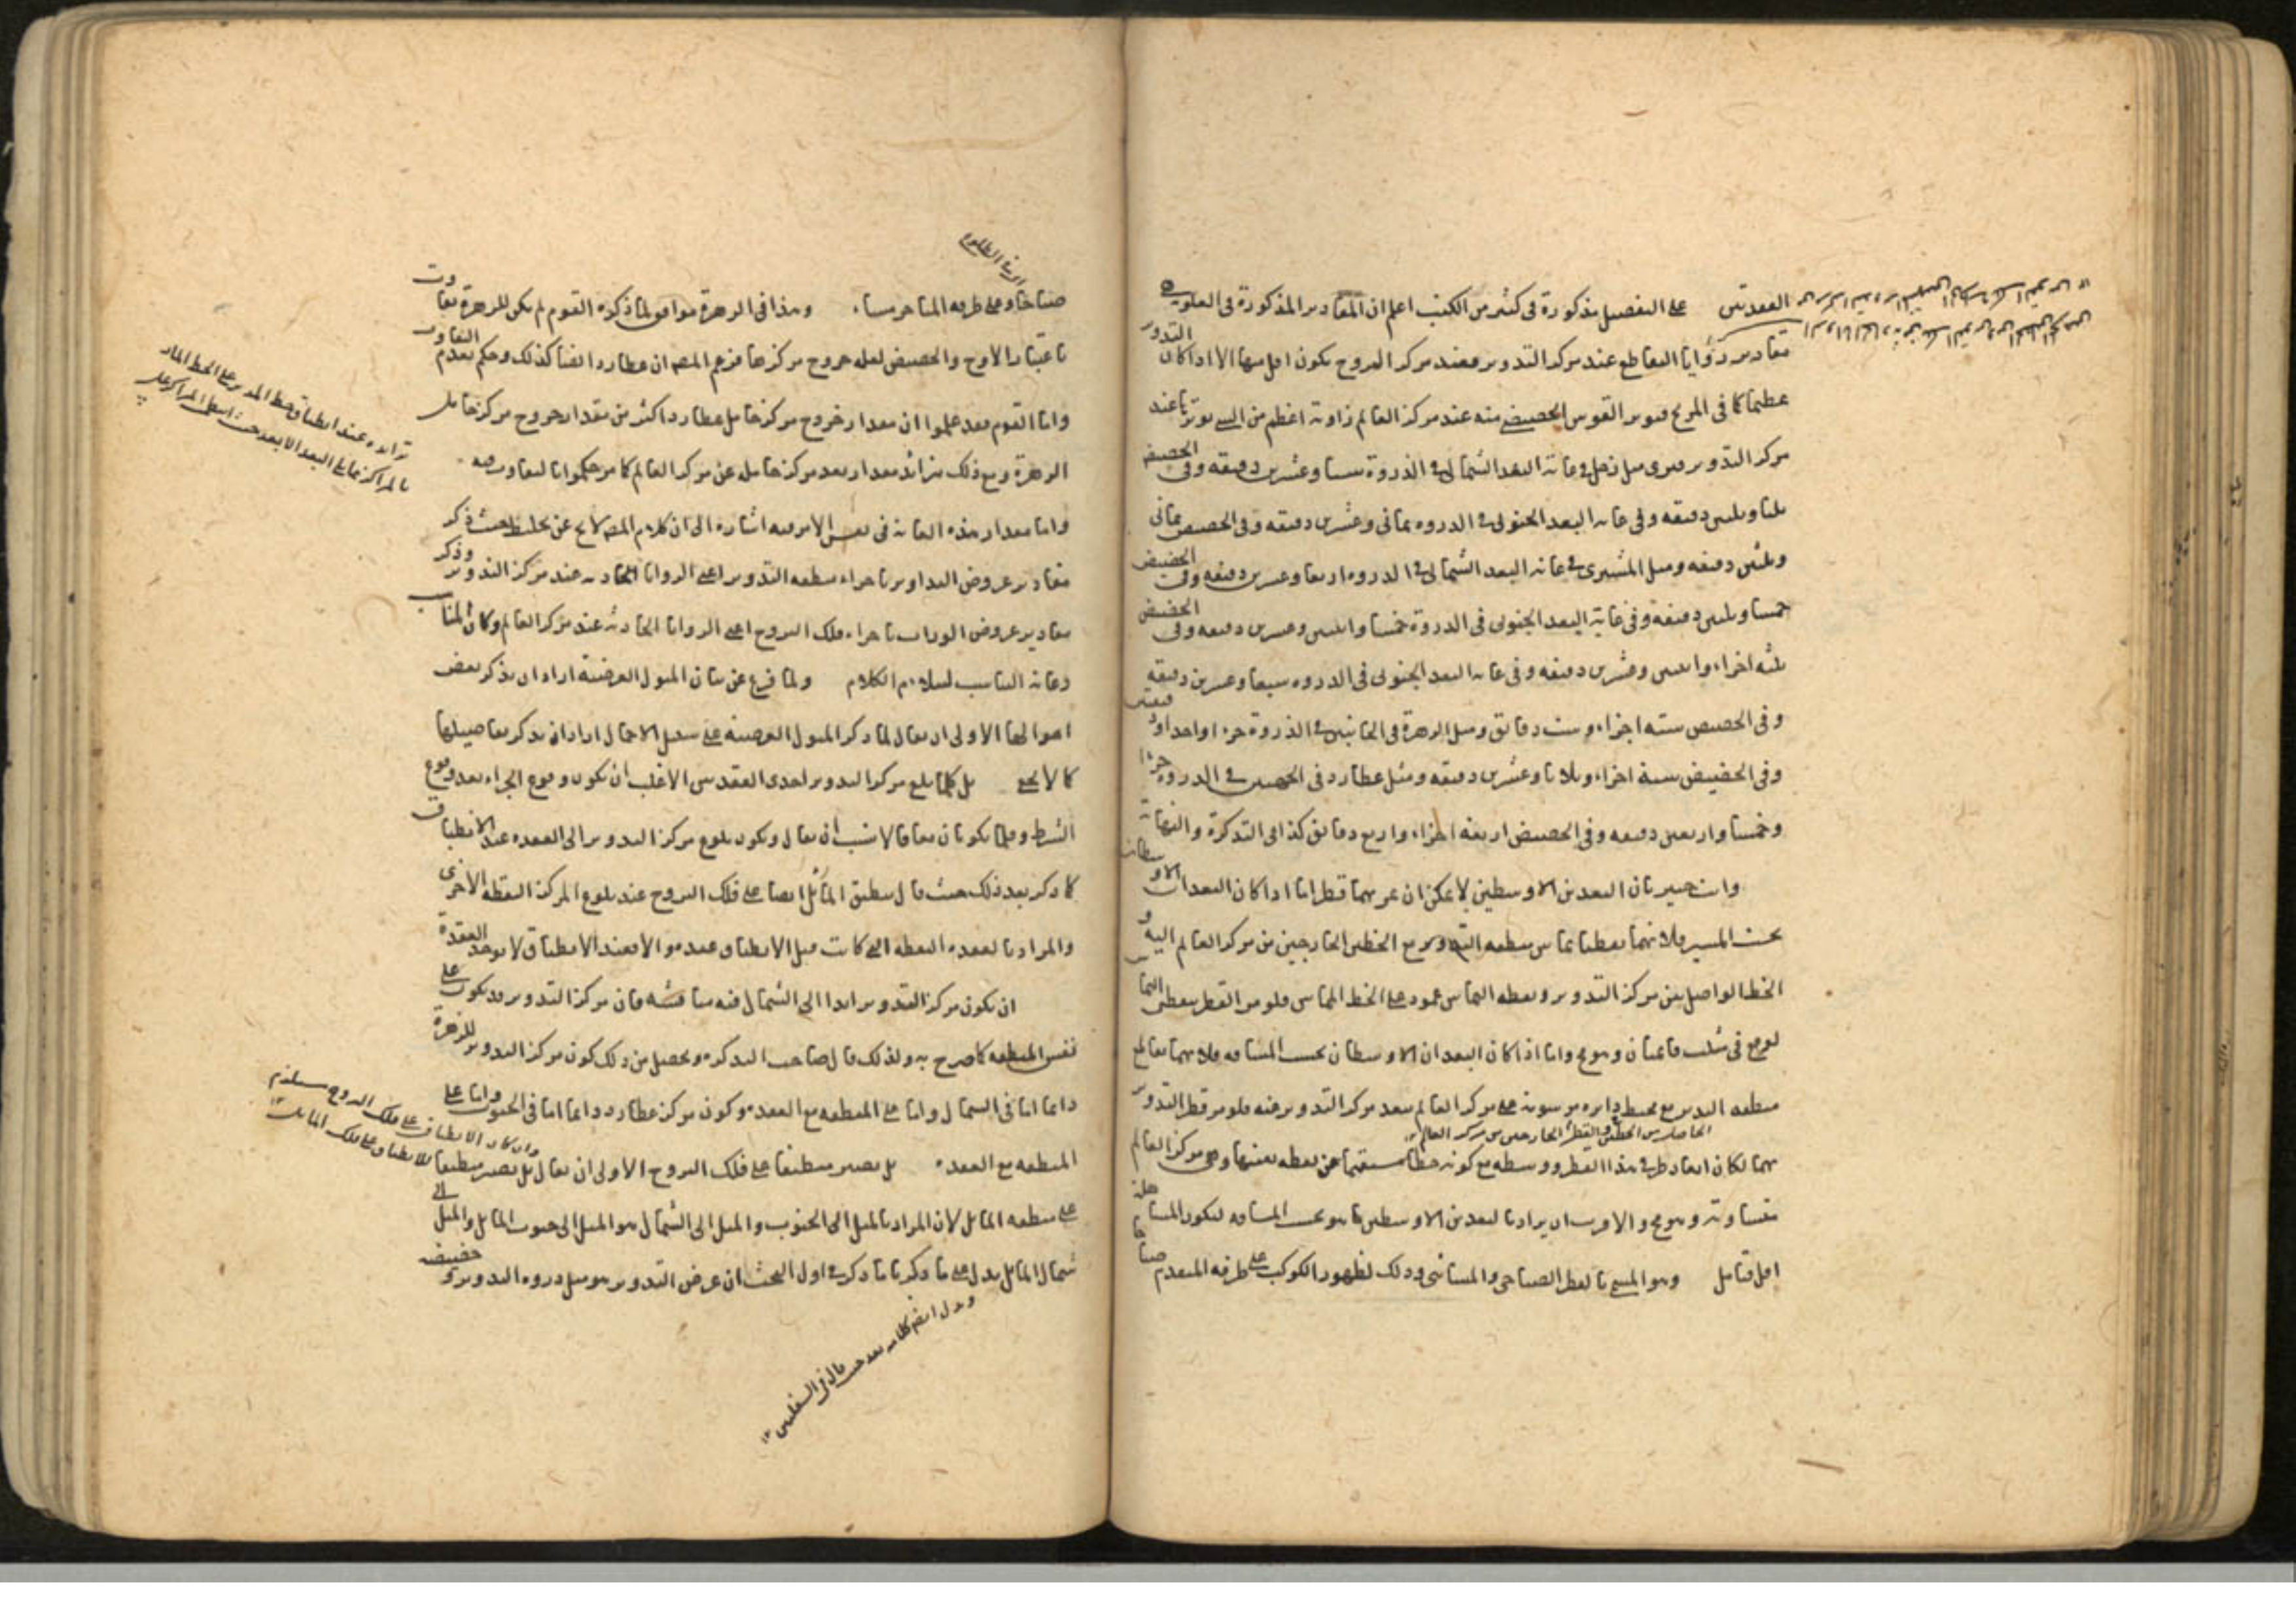 العقدتين على التفصيل مذكورة فى كثير من الكتب اعلم ان المقادير المذكورة فى العلوية
مقادير زوايا التقاطع عند مركز التدوير فعند مركز البروج يكون اقل منها الا اذا كان التدوير
عظيما كما فى المريخ فيوتر القوس الحضيضى منه عند مركز العالم زاوية اعظم من التى يوترها عند
مركز التدوير فيرى ميل زحل فى غاية البعد الشمالى فى الذروة ستا وعشرين دقيقه وفى الحضيض
ثلثا وثلثين دقيقه وفى غاية البعد الجنوبى فى الذروه ثمانى وعشرين دقيقه وفى الحضيض ثمانى
وثلثين دقيقه وميل المشترى فى غاية البعد الشمالى فى الذروه اربعا وعشرين دقيقه وفى الحضيض
خمسا وثلثين دقيقه وفى غاية البعد الجنوبى فى الذروة خمسا وعشرين دقيقه وفى الحضيض
ثلثه اجزاء واثنتين وعشرين دقيقه وفى غاية البعد الجنوبى فى الذروه سبعا وعشرين دقيقه
وفى الحضيض سته اجزاء وست دقائق وميل الزهرة فى الجانبين فى الذروة جزءا واحدا ودقيقتين
وفى الحضيض ستة اجزاء وثلاثا وعشرين دقيقه وميل عطارد فى الذروه جزءا
وخمسا واربعين دقيقه وفى الحضيض اربعة اجزاء واربع دقائق كذا فى التذكرة والنهاية
وانت خبير بان البعدين الاوسطين لا يمكن ان يمر بهما قطر اما اذا كان البعدان الاوسطان
بحسب المسير فلانهما نقطتا تماس منطقه التدوير مع الخطين الخارجين من مركز العالم اليه و
الخط الواصل بين مركز التدوير ونقطه التماس عمود على الخط المماس فلو مر القطر بنقطتى التماس
لوقع فى مثلث قائمتان وهو مح واما اذا كان البعدان الاوسطان بحسب المسافه فلانهما تقاطع
منطقه التدوير مع محيط دايره مرسومه على مركز العالم ببعد مركز التدوير منه فلو مر قطر التدوير
الحاصل بين الخارجين من مركز العالم ١٢
بهما لكان ابعاد طرفى هذا القطر ووسطه مع كونه خطا مستقيما عن نقطه بعينها وهى مركز العالم
متساوية وهو مح والاقرب ان يراد بالبعدين الاوسطين ما هو بحسب المسافه ليكون المساهلة
اقل فتامل وهو المسمى بالقطر الصباحى والمسائى وذلك لظهور الكوكب على طرفه المتقدم صباحا
صباحا وعلى طرفه المتاخر مساء وهذا فى الزهرة موافق لما ذكره القوم لم يكن للزهرة تفاوت
باعتبار الاوج والحضيض لقله خروج مركزها فزعم المصـ ان عطارد ايضا كذلك وحكم بعدم التفاوت
واما القوم فقد علموا ان مقدار خروج مركز حامل عطارد اكثر من مقدار خروج مركز حامل
الزهرة ومع ذلك يزائد مقدار بعد مركز حامله عن مركز العالم كما مر حكموا بالتفاوت فيه
واما مقدار هذه الغاية فى نفس الامر فيه اشاره الى ان كلام المصـ لا يخ عن خلط حيث ذكر
مقادير عروض التداوير باجزاء منطقه التدوير اعنى الزوايا الحادثه عند مركز التدوير وذكر
مقادير عروض باجزاء فلك البروج اعنى الزوايا الحادثه عند مركز العالم وكان المناسب
رعاية التناسب ليتلائم الكلام ولما فرغ عن بيان الميول العرضية اراد ان يذكر بعض
احوالها الاولى ان يقال لما ذكر الميول العرضيه على سبيل الاجمال اراد ان يذكر تفاصيلها
كما لا يخفى بل كلما بلغ مركز التدوير احدى العقدتين الاغلب ان يكون وقوع الجزاء بعد وقوع
الشرط وقلما يكونان معا فالانسب ان يقال ويكون بلوغ مركز التدوير الى العقده عند الانطباق
كما ذكر بعد ذلك حيث قال ينطبق المائل ايضا على فلك البروج عند بلوغ المركز النقطه الاخرى
والمراد بالعقده النقطه التى كانت قبل الانطباق عقده والا فعند الانطباق لا يوجد العقدة
ان يكون مركز التدوير ابدا الى الشمال فيه مناقشه فان مركز التدوير قد يكون على
نفس المنطقه كما صرح به ولذلك قال صاحب التذكره ويحصل من ذلك كون مركز التدوير للزهرة
دائما اما فى الشمال واما على المنطقه مع العقده وكون مركز عطارد دائما اما فى الجنوب واما على
المنطقه مع العقده بل يصير منطبقا على فلك البروج الاولى ان يقال بل يصير منطبقا
على منطقه المائل لان المراد بالميل الى الجنوب والميل الى الشمال هو الميل الى جنوب المائل والميل الى
شمال المائل يدل على ما ذكرنا ما ذكر فى اول البحث ان عرض التدوير هو ميل ذروه التدوير وحضيضه
تزايده عند انطباق خط المدير على الخط المار
وان كان الانطباق على فلك البروج مستلزم
للانطباق على فلك المائل ١٢
ويدل ايضا كلامه بعد حيث قال فى السفليين ١٢